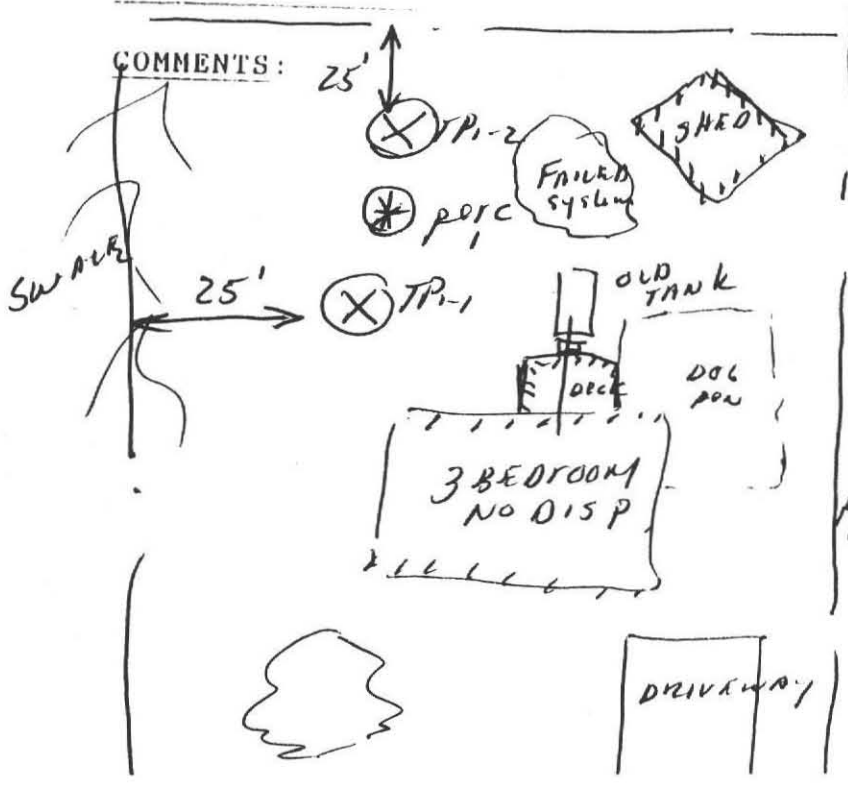 COMMENTS:
25'
TP1-2
SHED
FAILED
system
perc
1
SWALE
25'
TP1-1
OLD
TANK
DECK
DOG
PEN
3 BEDROOM
NO DISP
DRIVEWAY